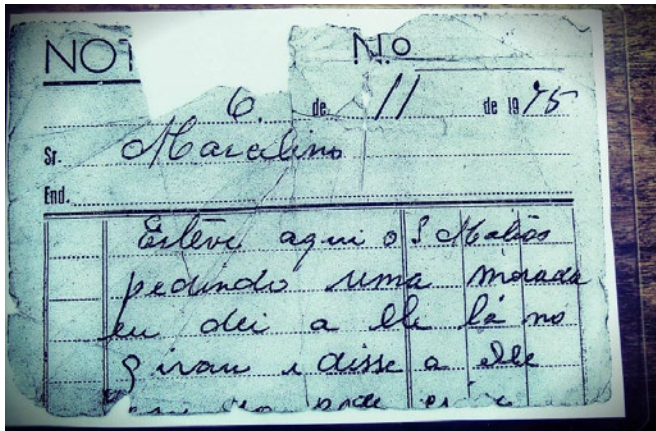 NOT N.o
6. de 11 de 1975
Sr. Marcelino
End.
Esteve aqui o S
pedindo uma morada
eu dei a elle lá no
e disse a elle
pode